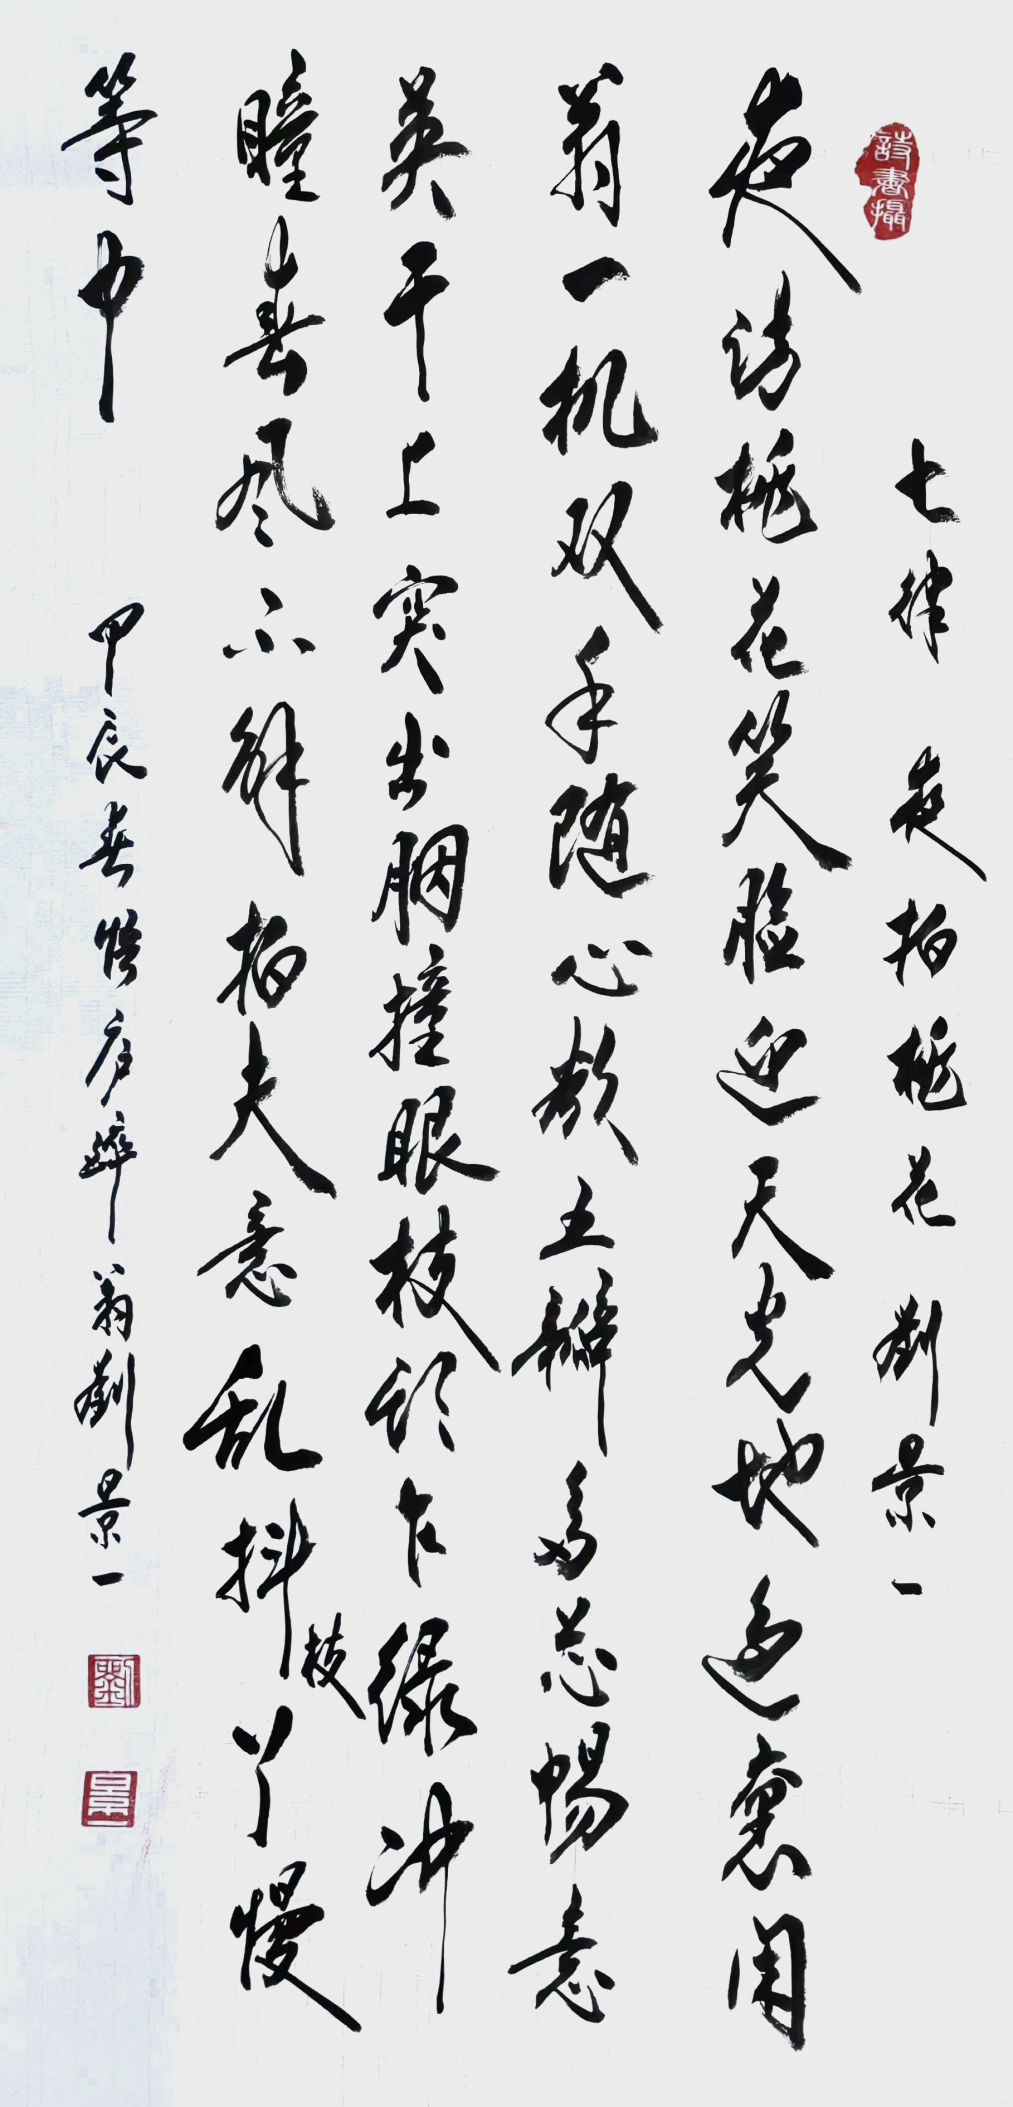 詩書攝
七律 夜拍桃花 劉景一
夜访桃花笑脸迎天光地闲
翁一机双手随心欲五瓣多芯畅意
英干上突出胭撞眼枝头乍绿冲
瞳春风不解拍夫意乱抖枝丫慢
等中
甲辰春悟庐翁劉景一
劉
景一